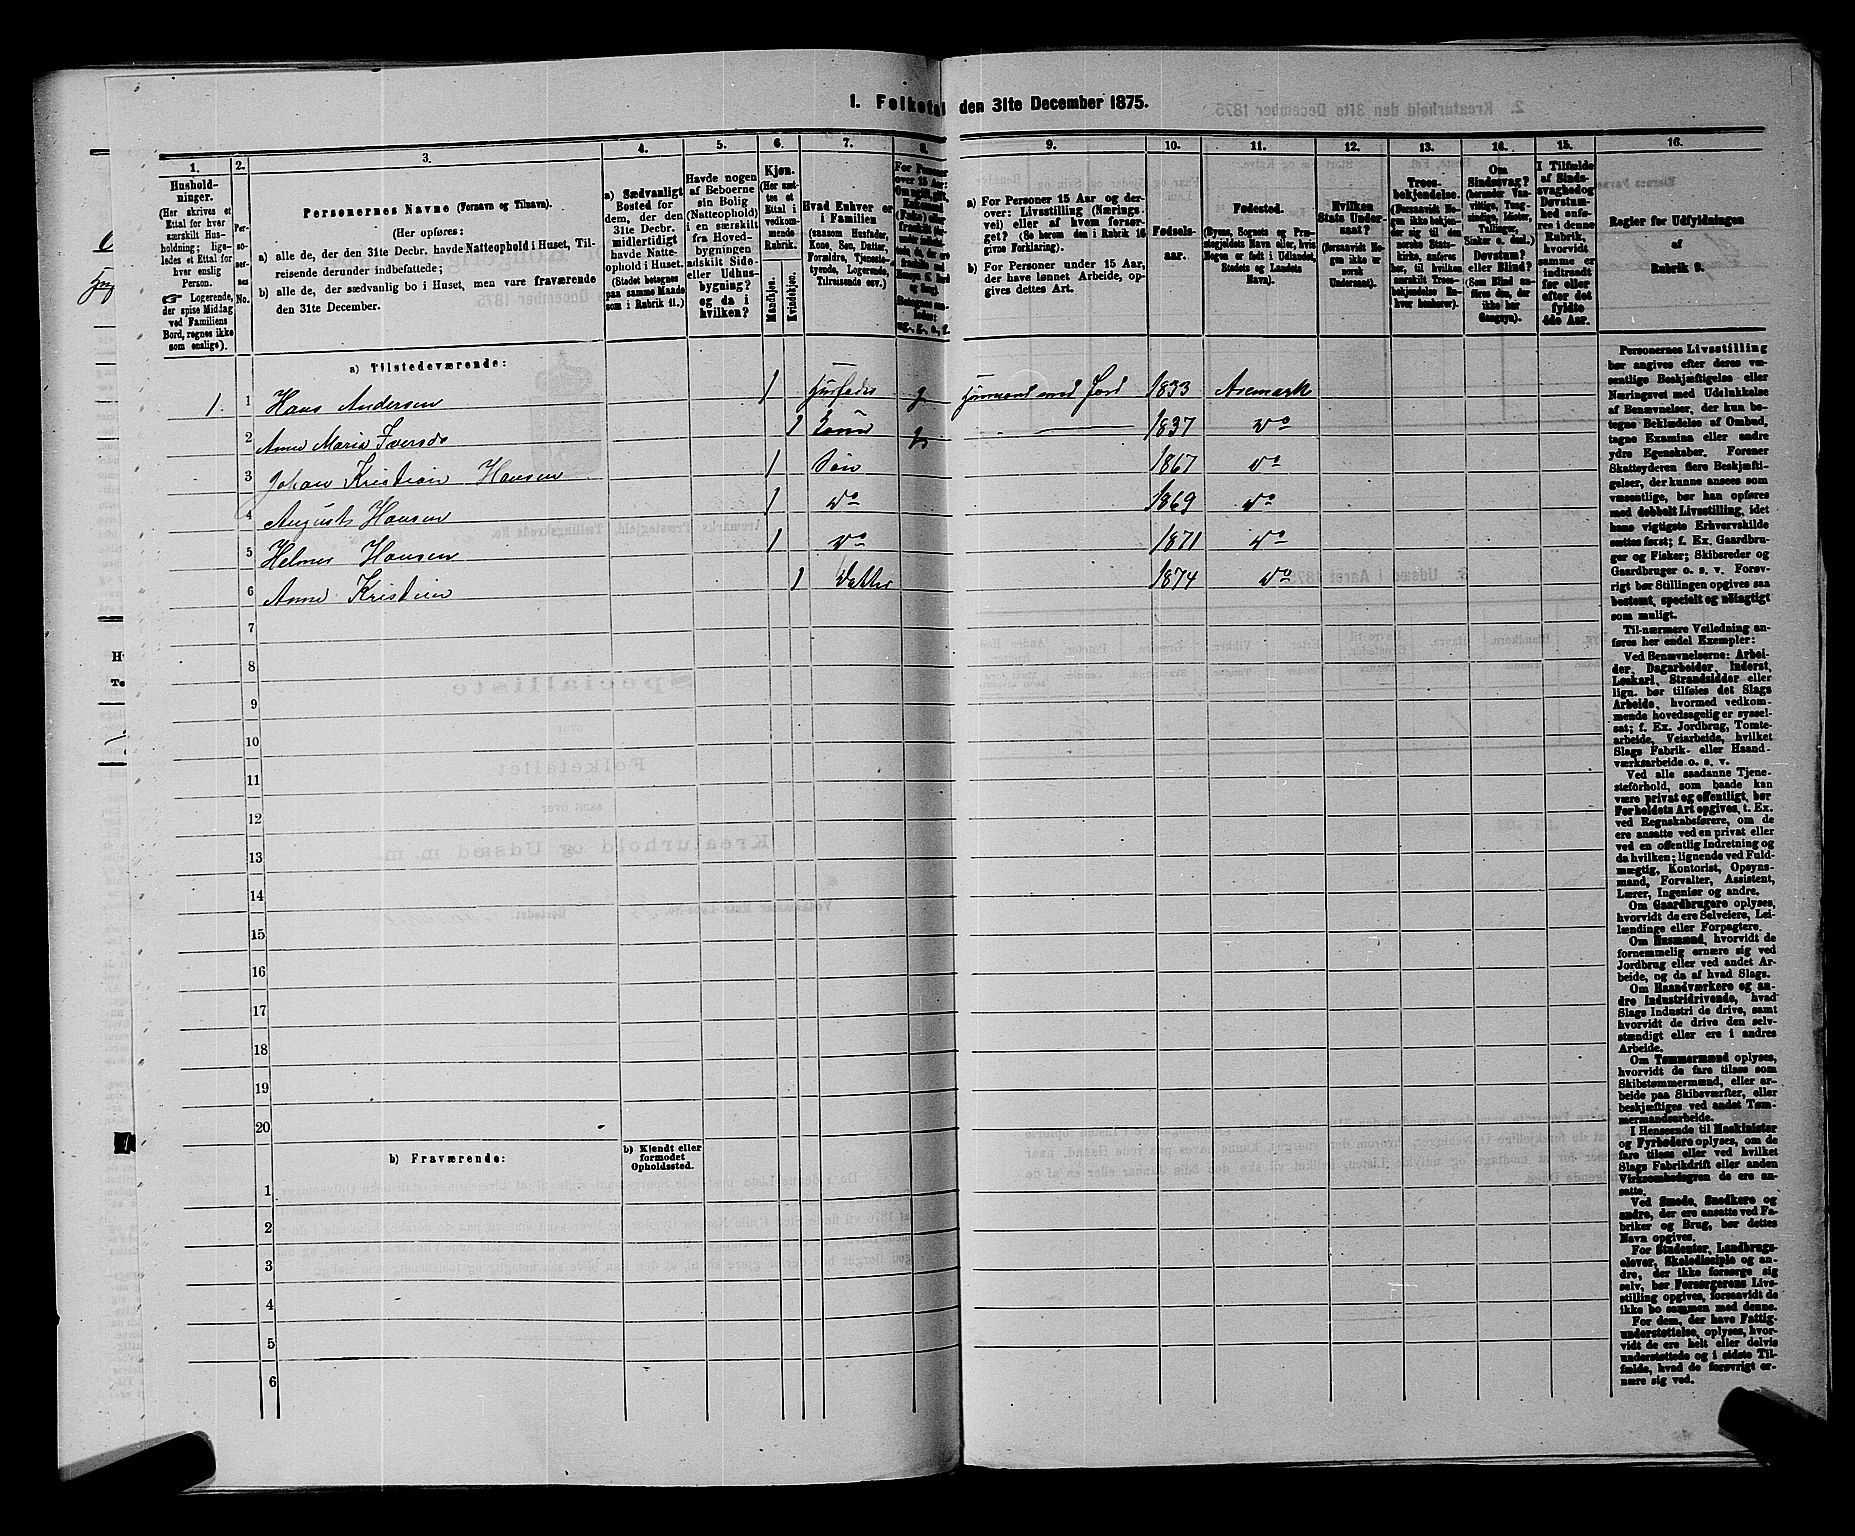 1. Folketal den 31te December 1875.
1. 2. 3. 4. 5. 6. 7. 8. 9. 10. 11. 12. 13. 14. 15. 16.
Husholdninger.
(Her skrives et
Ettal for hver
særskilt Husholdning; ligeledes
et Ettal for
hver enslig
Person.
☞ Logerende,
der spise Middag
ved Familiens
Bord, regnes ikke
som enslige).
Personernes No.
Personernes Navne (Fornavn og Tilnavn).
(Her opføres:
a) alle de, der den 31te Decbr. havde Natteophold i Huset, Tilreisende derunder indbefattede;
b) alle de, der sædvanlig bo i Huset, men vare fraværende
den 31te December.
a) Sædvanligt
Bosted for
dem, der den
31te Decbr.
midlertidigt
havde Natteophold
i Huset.
(Stedet betegnes
paa samme Maade
som i Rubrik 11.)
Havde nogen
af Beboerne
sin Bolig
(Natteophold)
i en særskilt
fra Hovedbygningen
adskilt Sideeller
Udhusbygning?
og da i
hvilken?
Kjøn.
(Her sættes
et
Ettal i
vedkommende
Rubrik.
Mandkjøn.
Kvindekjøn.
Hvad Enhver er
i Familien
(saasom Husfader,
Kone, Søn, Datter,
Forældre, Tjenestetyende,
Logerende,
Tilreisende osv.)
For Personer
over 15 Aar:
a) For Personer 15 Aar og derover:
Livsstilling (Næringsvei)
eller af hvem forsørget?
(Se herom den i Rubrik 16
givne Forklaring).
b) For Personer under 15 Aar,
der have lønnet Arbeide, opgives
dettes Art.
Fødselsaar.
Fødested.
(Byens, Sognets og Præstegjeldets
Navn eller, hvis
Nogen er født i Udlandet,
Stedets og Landets
Navn).
Hvilken
Stats Undersaat?
(forsaavidt Nogen
ikke er
norsk
Undersaat).
Troesbekjendelse.
I Tilfælde
af Sindssvaghed
og
Døvstumhed
anføres
i denne
Rubrik,
hvorvidt
samme er
indtraadt
før eller
efter det
fyldte
4de Aar.
Regler for Udfyldningen
af
Rubrik 9.
a) Tilstedeværende:
1. 1 Hans Andersen 1 Husfader g Husmand med Jord 1833 Aremark
2 Anne Maria Iversdo 1 Kone g 1837 do
3 Johan Kristian Hansen 1 Søn 1867 do
4 August Hansen 1 do 1869 do
5 Helmer Hansen 1 do 1871 do
6 Anne Kristien 1 Datter 1874 do
7
8
9
10
11
12
13
14
15
16
17
18
19
20
b) Fraværende:
b) Kjendt eller
formodet
Opholdssted.
1
2
3
4
5
6
Personernes Livsstilling
bør angives efter deres væsentlige
Beskjæftigelse eller
Næringsvei med Udelukkelse
af Benævnelser, der kun betegne
Beklædelse af Ombud,
tagne Examina eller andre
ydre Egenskaber. Forener
Skatteyderen flere Beskjæftigelser,
der kunne ansees som
væsentlige, bør han opføres
med dobbelt Livsstilling, idet
hans vigtigste Erhvervskilde
sættes først; f. Ex. Gaardbruger
og Fisker; Skibsreder og
Gaardbruger o. s. v. Forøvrigt
bør Stillingen opgives saa
bestemt, specielt og nöiagtigt
som muligt.
Til nærmere Veiledning anføres
her endel Exempler:
Ved Benævnelserne: Arbeider,
Dagarbeider, Inderst,
Løskarl, Strandsidder eller
lign. bør tilføies det Slags
Arbeide, hvormed vedkommende
hovedsagelig er sysselsat;
f. Ex. Jordbrug, Tomtearbeide,
Veiarbeide, hvilket
Slags Fabrik- eller Haandværksarbeide
o. s. v.
Ved alle saadanne Tjenesteforhold,
som baade kan
være privat og offentligt, bør
Forholdets Art opgives, t. Ex.
ved Regnskabsførere, om de
ere ansatte ved en privat eller
ved en offentlig Indretning og
da hvilken; lignende ved Fuldmægtig,
Kontorist, Opsynsmand,
Forvalter, Assistent,
Lærer, Ingeniør og andre.
Om Gaardbrugere oplyses,
hvorvidt de ere Selveiere, Leilændinge
eller Forpagtere.
Om Husmænd, hvorvidt de
fornemmelig ernære sig ved
Jordbrug eller ved andet Arbeide,
og da af hvad Slags.
Om Haandværkere og andre
Industridrivende, hvad
Slags Industri de drive, samt
hvorvidt de drive den selvstændigt
eller ere i andres
Arbeide.
Om Tømmermænd oplyses,
hvorvidt de fare tilsøs som
Skibstømmermænd, eller arbeide
paa Skibsværfter, eller
beskjæftiges ved andet Tømmermandsarbeide.
I Henseende til Maskinister
og Fyrbødere oplyses, om de
fare tilsøs eller ved hvilket
Slags Fabrikdrift eller anden
Virksomhedsgren de ere ansatte.
Ved Smede, Snedkere og
andre, der ere ansatte ved Fabriker
og Brug, bør dettes
Navn opgives.
For Studenter, Landbrugselever,
Skoledisciple og andre,
der ikke forsørge sig
selv, bør Forsørgerens Livsstilling
opgives, forsaavidt de
ikke bo sammen med denne.
For dem, der have Fattigunderstøttelse,
oplyses, hvorvidt
de ere helt eller delvis
understøttede og i sidste Tilfælde,
hvad de forøvrigt ernære
sig ved.